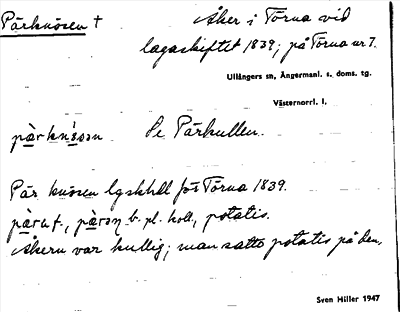 Pärknösen † Åker i Törna vid
lagaskiftet 1839; på Törna nr 7.
Ullångers sn, Ångermanl. s. doms. tg.
Västernorrl. l.
Se Pärkullen.
Pär knösen lgskhdl för Törna 1839.
b. pl. koll., potatis.
Åkern var kullig; man satte potatis på den.
Sven Hiller 1947